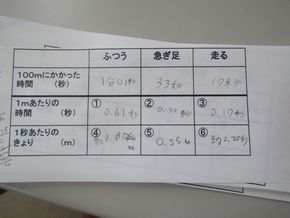 ふつう 急ぎ足 走る
100mにかかった
時間 (秒) 1分01秒 33秒 17秒
1mあたりの
時間 (秒) ① 0.61秒 ② 0.33秒 ③ 0.17秒
1秒あたりの
きょり (m) ④ m ⑤ 0.55m ⑥